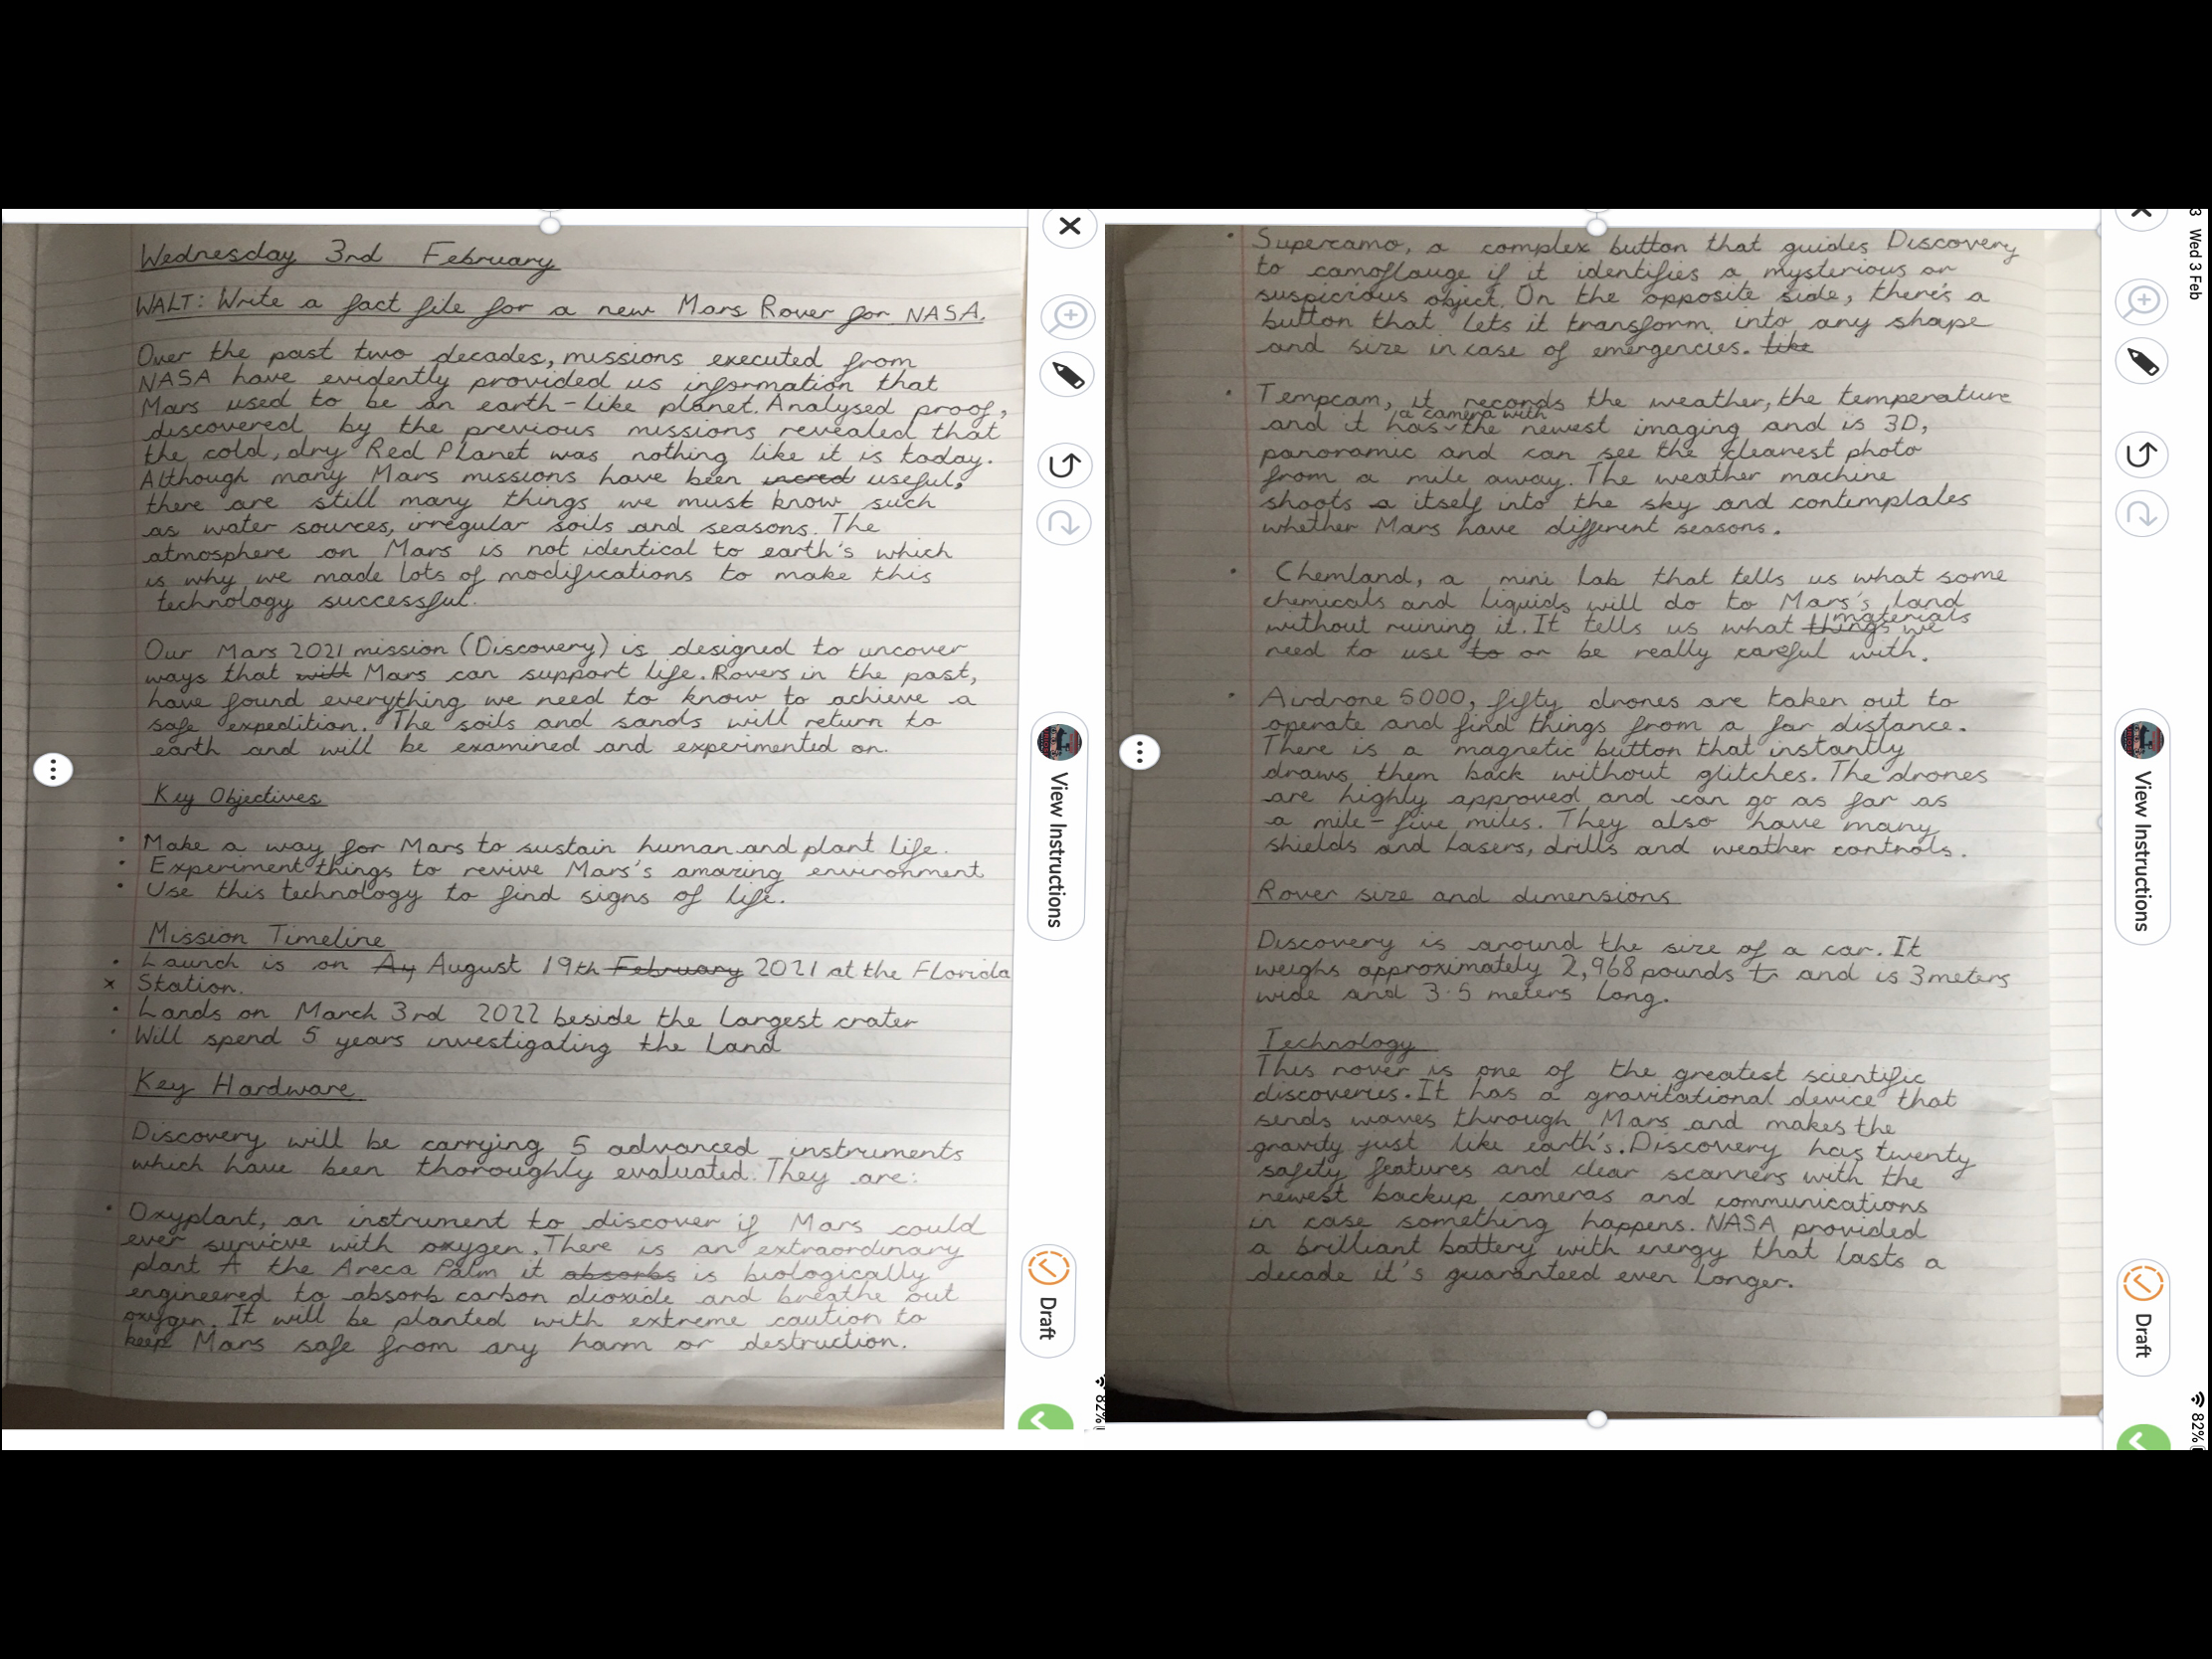 Wednesday 3rd February
WALT: Write a fact file for a new Mars Rover for NASA.
Over the past two decades, missions executed from
NASA have evidently provided us information that
Mars used to be an earth-like planet. Analysed proof,
discovered by the previous missions revealed that
the cold, dry Red Planet was nothing like it is today.
Although many Mars missions have been incred useful,
there are still many things we must know such
as water sources, irregular soils and seasons. The
atmosphere on Mars is not identical to earth's which
is why we made lots of modifications to make this
technology successful.
Our Mars 2021 mission (Discovery) is designed to uncover
ways that will Mars can support life. Rovers in the past,
have found everything we need to know to achieve a
safe expedition. The soils and sands will return to
earth and will be examined and experimented on.
Key Objectives
• Make a way for Mars to sustain human and plant life.
• Experiment things to revive Mars's amazing environment
• Use this technology to find signs of life.
Mission Timeline
• Launch is on Ay August 19th February 2021 at the Florida
x Station.
• Lands on March 3rd 2022 beside the largest crater
• Will spend 5 years investigating the land
Key Hardware
Discovery will be carrying 5 advanced instruments
which have been thoroughly evaluated. They are:
• Oxyplant, an instrument to discover if Mars could
ever survive with oxygen. There is an extraordinary
plant A the Areca Palm it absorbs is biologically
engineered to absorb carbon dioxide and breathe out
oxygen. It will be planted with extreme caution to
keep Mars safe from any harm or destruction.
View Instructions
Draft
82%
• Supercamo, a complex button that guides Discovery
to camoflauge if it identifies a mysterious or
suspicious object. On the opposite side, there's a
button that lets it transform into any shape
and size in case of emergencies. like
• Tempcam, it records the weather, the temperature
a camera with
and it has the newest imaging and is 3D,
panoramic and can see the clearest photo
from a mile away. The weather machine
shoots a itself into the sky and contemplates
whether Mars have different seasons.
• Chemland, a mini lab that tells us what some
chemicals and liquids will do to Mars's land
materials
without ruining it. It tells us what things we
need to use to or be really careful with.
• Airdrone 5000, fifty drones are taken out to
operate and find things from a far distance.
There is a magnetic button that instantly
draws them back without glitches. The drones
are highly approved and can go as far as
a mile-five miles. They also have many
shields and lasers, drills and weather controls.
Rover size and dimensions
Discovery is around the size of a car. It
weighs approximately 2,968 pounds t and is 3 meters
wide and 3.5 meters long.
Technology
This rover is one of the greatest scientific
discoveries. It has a gravitational device that
sends waves through Mars and makes the
gravity just like earth's. Discovery has twenty
safety features and clear scanners with the
newest backup cameras and communications
in case something happens. NASA provided
a brilliant battery with energy that lasts a
decade it's guaranteed even longer.
3 Wed 3 Feb
View Instructions
Draft
82%